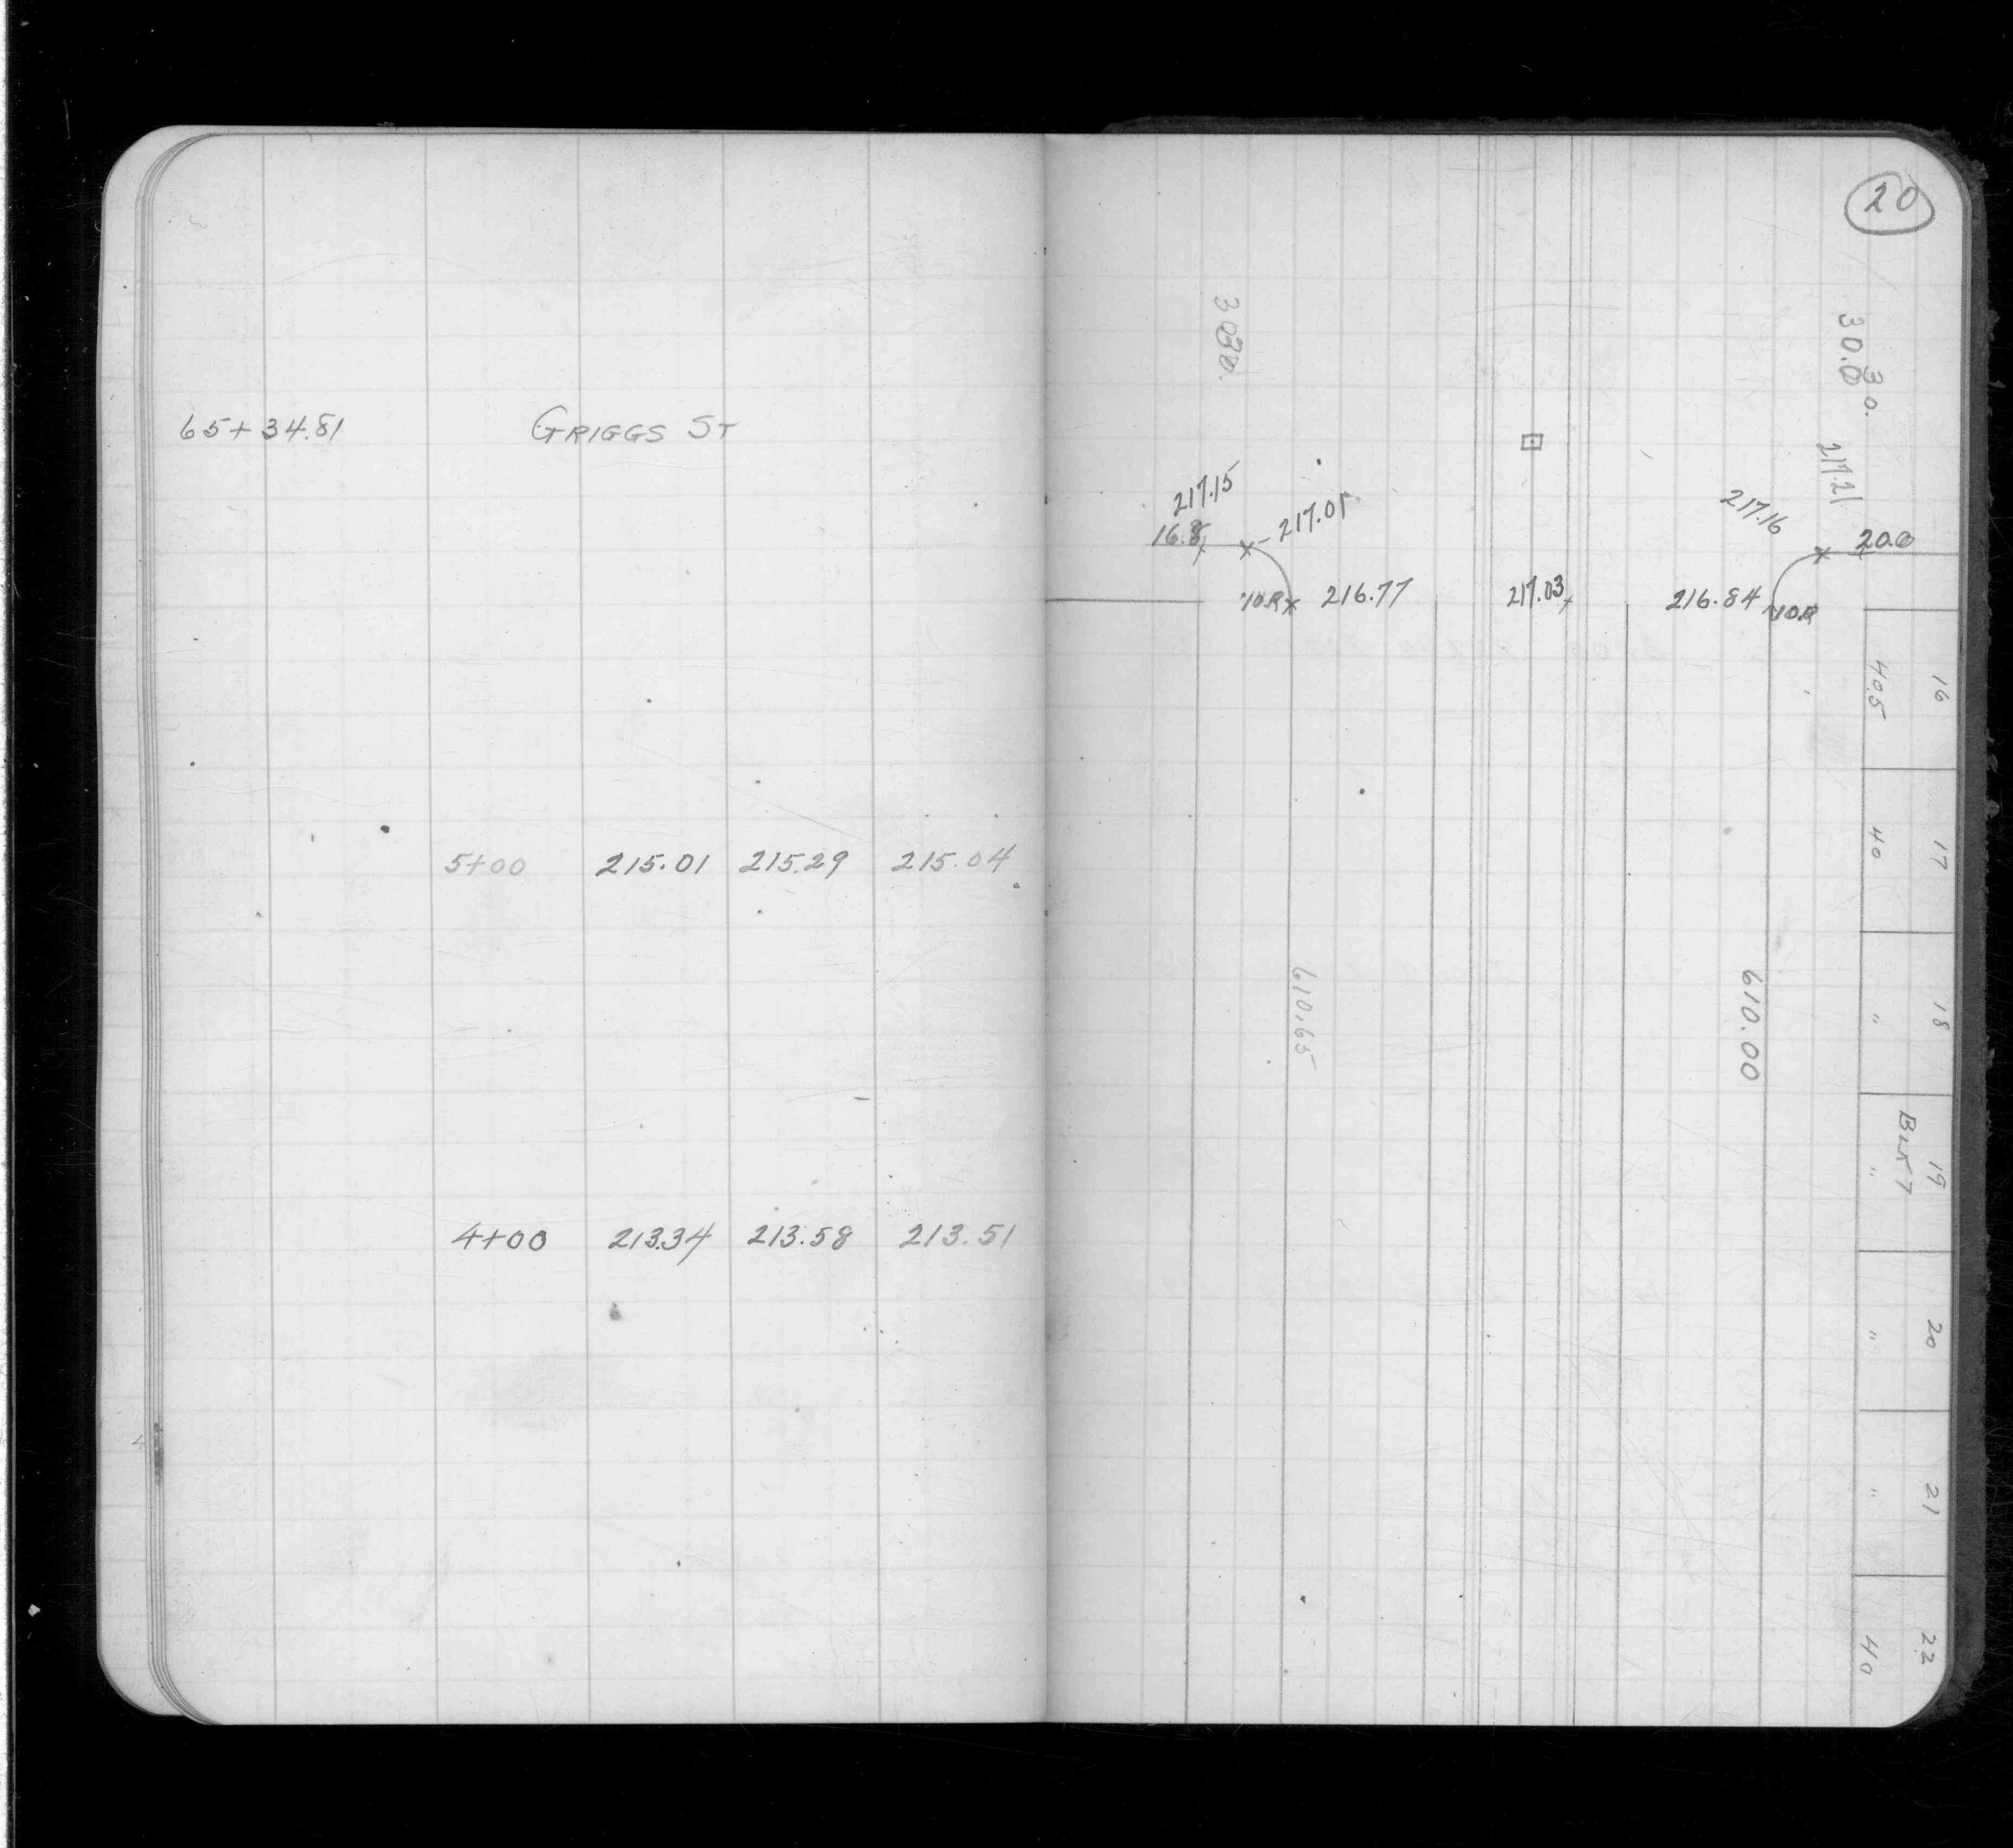 65+34.81 GRIGGS ST
5+00 215.01 215.29 215.04
4+00 213.34 213.58 213.51
20
30.0
30.
217.21
217.15
16.8
217.01
217.16
20.0
10.R 216.77 217.03 216.84 10.R
16
40.5
17
40
610.65
610.00
18
"
19
"
20
"
21
"
22
40